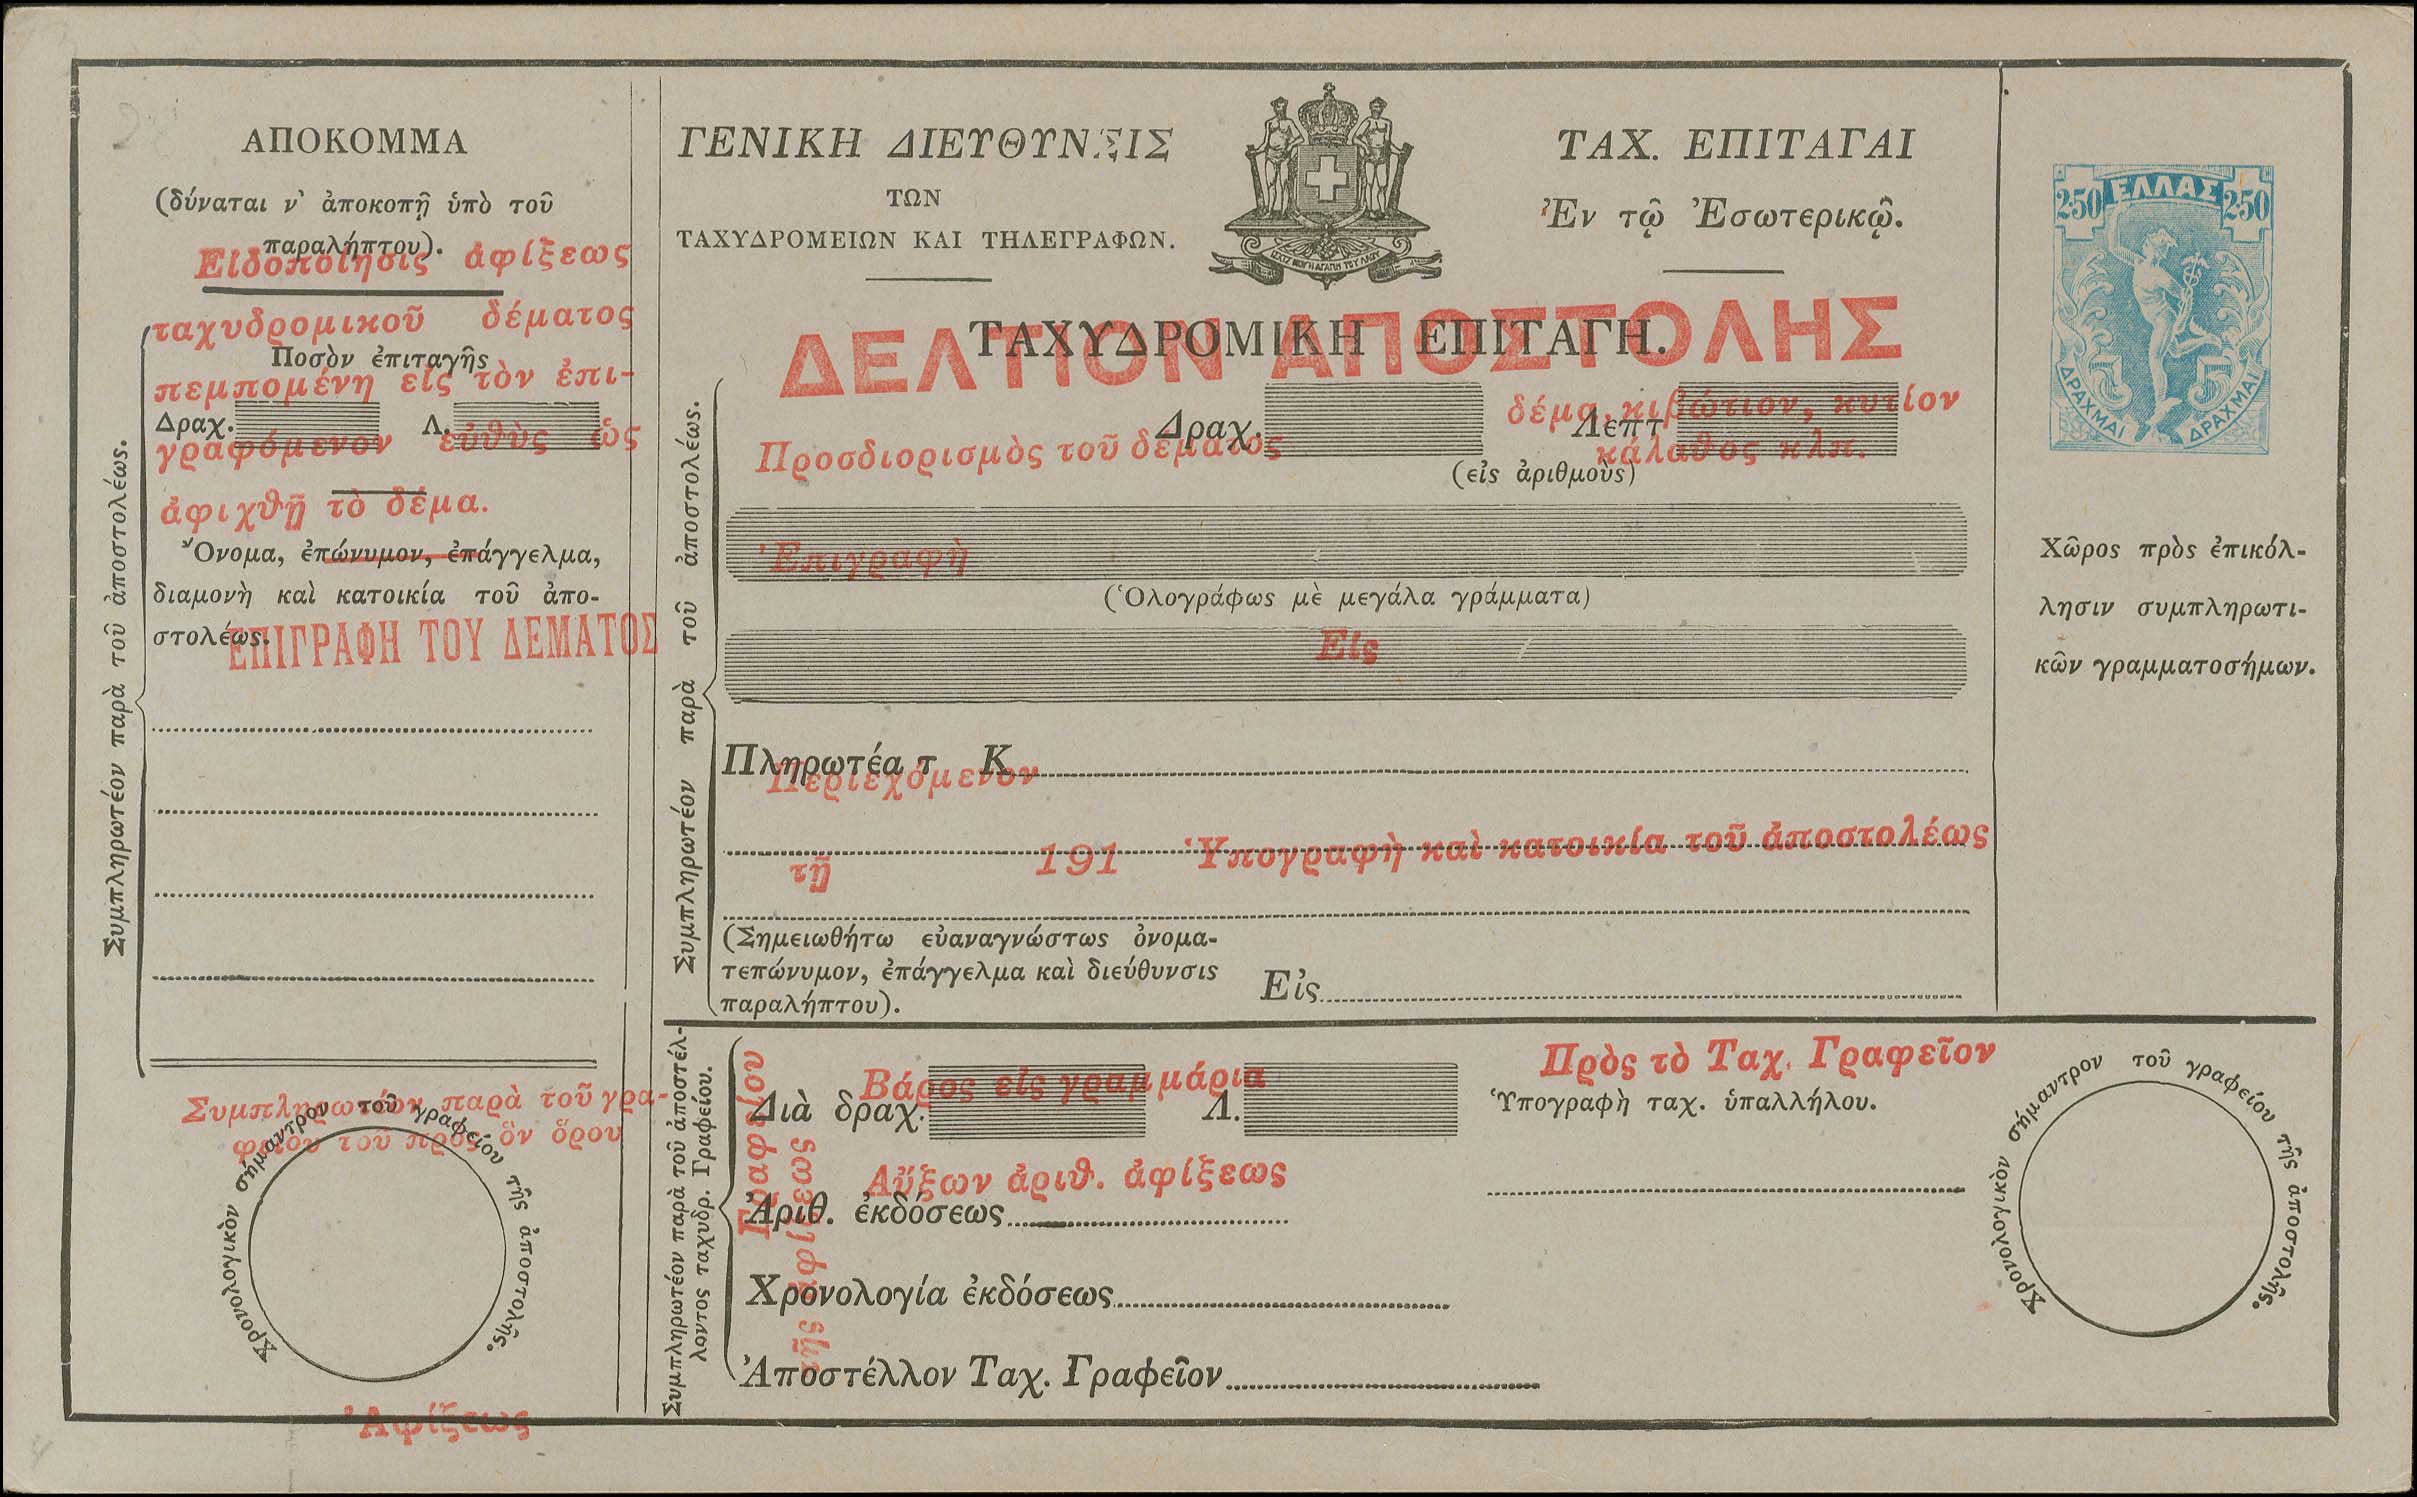 ΑΠΟΚΟΜΜΑ
(δύναται ν' ἀποκοπῇ ὑπὸ τοῦ
παραλήπτου).
Εἰδοποίησις ἀφίξεως
ταχυδρομικοῦ δέματος
Ποσὸν ἐπιταγῆς
πεμπομένη εἰς τὸν ἐπι-
Δραχ. Λ.
γραφόμενον εὐθὺς ὡς
ἀφιχθῇ τὸ δέμα.
Ὄνομα, ἐπώνυμον, ἐπάγγελμα,
διαμονὴ καὶ κατοικία τοῦ ἀπο-
στολέως.
ΕΠΙΓΡΑΦΗ ΤΟΥ ΔΕΜΑΤΟΣ
Συμπληρωτέον παρὰ τοῦ ἀποστολέως.
Συμπληρωτέον παρὰ τοῦ γρα-
φείου τοῦ πρὸς ὃν ὅρου
Χρονολογικὸν σήμαντρον τοῦ γραφείου τῆς ἀποστολῆς.
Ἀφίξεως
ΓΕΝΙΚΗ ΔΙΕΥΘΥΝΣΙΣ
ΤΩΝ
ΤΑΧΥΔΡΟΜΕΙΩΝ ΚΑΙ ΤΗΛΕΓΡΑΦΩΝ.
ΙΣΧΥΣ ΜΟΥ Η ΑΓΑΠΗ ΤΟΥ ΛΑΟΥ
ΤΑΧ. ΕΠΙΤΑΓΑΙ
Ἐν τῷ Ἐσωτερικῷ.
ΤΑΧΥΔΡΟΜΙΚΗ ΕΠΙΤΑΓΗ.
ΔΕΛΤΙΟΝ ΑΠΟΣΤΟΛΗΣ
Δραχ. Λεπτ
δέμα, κιβώτιον, κυτίον
κάλαθος κλπ.
Προσδιορισμὸς τοῦ δέματος
(εἰς ἀριθμοὺς)
Ἐπιγραφὴ
(Ὁλογράφως μὲ μεγάλα γράμματα)
Εἰς
Πληρωτέα τ Κ
Περιεχόμενον
τῇ 191 Ὑπογραφὴ καὶ κατοικία τοῦ ἀποστολέως
(Σημειωθήτω εὐαναγνώστως ὀνομα-
τεπώνυμον, ἐπάγγελμα καὶ διεύθυνσις
παραλήπτου).
Εἰς
Συμπληρωτέον παρὰ τοῦ ἀποστολέως.
Συμπληρωτέον παρὰ τοῦ ἀποστέλ-
λοντος ταχυδρ. Γραφείου.
Γραφείου
τῆς ἀφίξεως
Βάρος εἰς γραμμάρια
Διὰ δραχ. Λ.
Αὔξων ἀριθ. ἀφίξεως
Ἀριθ. ἐκδόσεως
Χρονολογία ἐκδόσεως
Ἀποστέλλον Ταχ. Γραφεῖον
Πρὸς τὸ Ταχ. Γραφεῖον
Ὑπογραφὴ ταχ. ὑπαλλήλου.
250 ΕΛΛΑΣ 250
5 5
ΔΡΑΧΜΑΙ ΔΡΑΧΜΑΙ
Χῶρος πρὸς ἐπικόλ-
λησιν συμπληρωτι-
κῶν γραμματοσήμων.
Χρονολογικὸν σήμαντρον τοῦ γραφείου τῆς ἀποστολῆς.